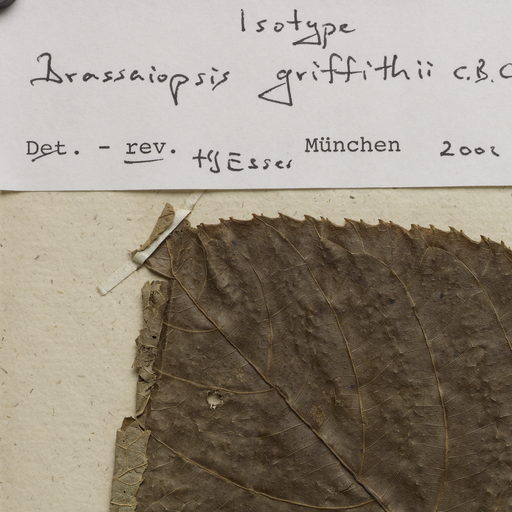 Isotype
Brassaiopsis griffithii C.B.C
Det. - rev. HJ Esser München 2002